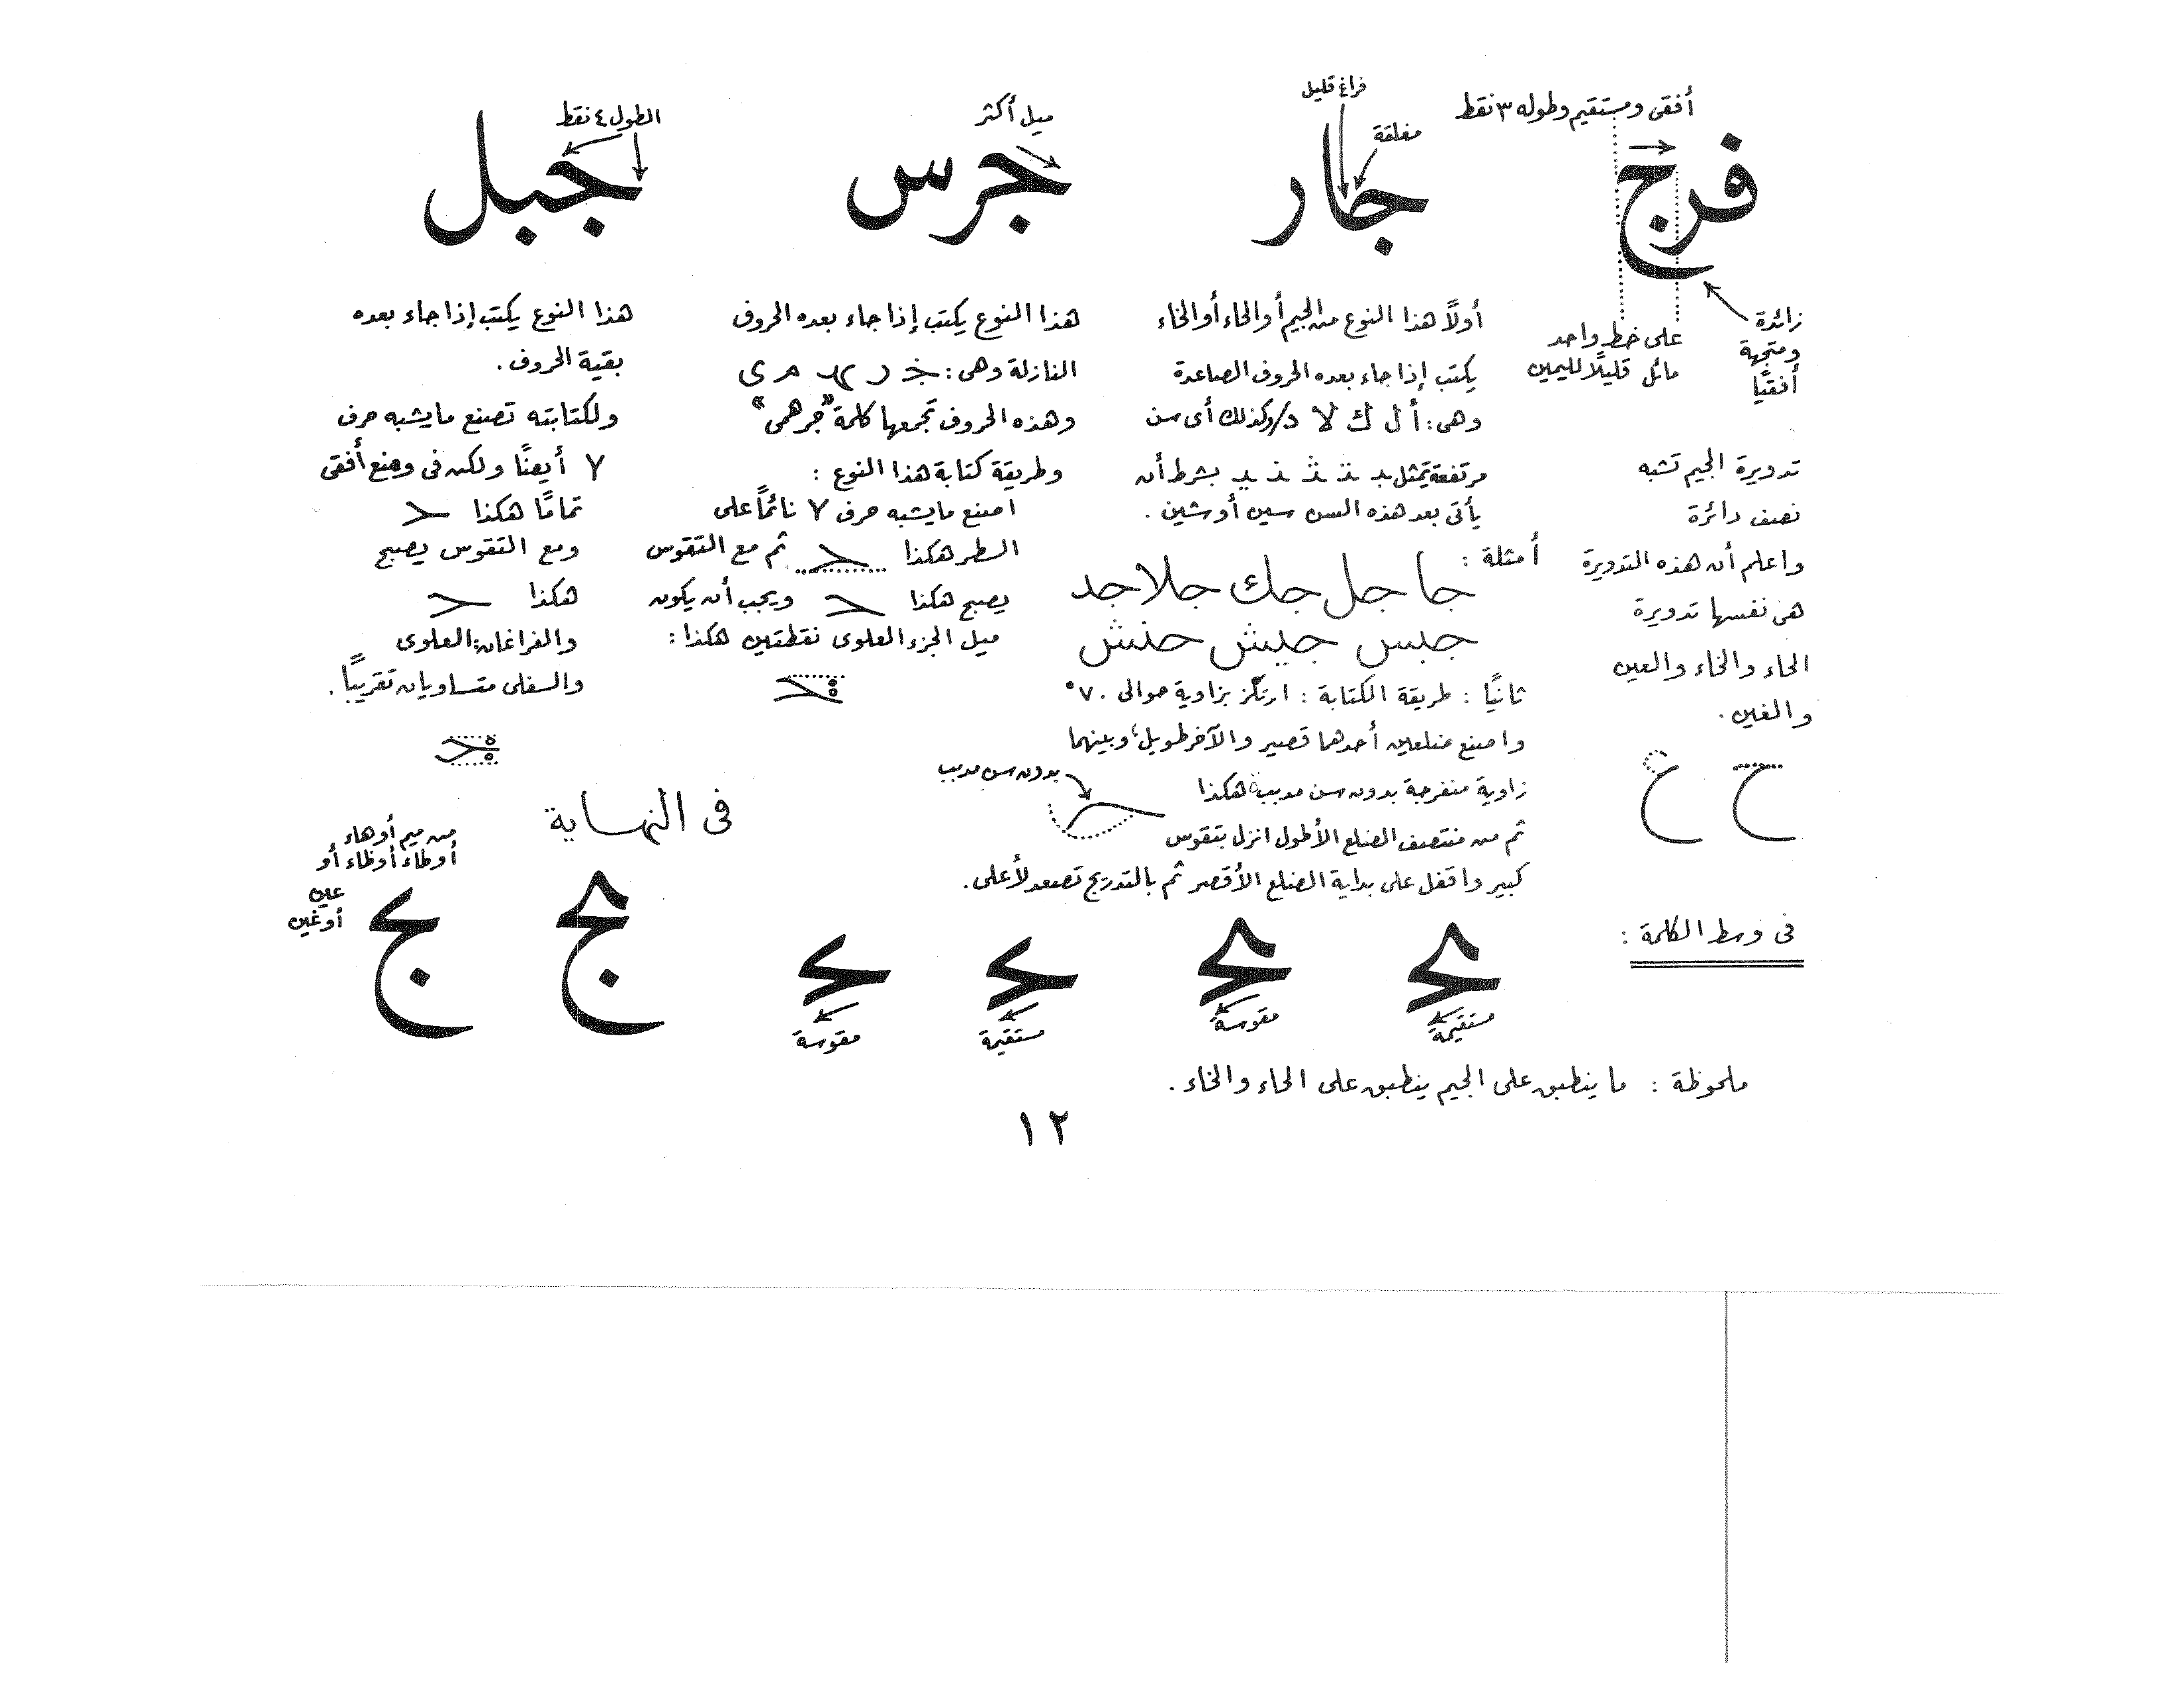 أفقى ومستقيم وطوله ٣ نقط
فرج
زائدة
ومتجهة
أفقيًا
على خط واحد
مائل قليلًا لليمين
تدويرة الجيم تشبه
نصف دائرة
واعلم أن هذه التدويرة
هى نفسها تدويرة
الحاء والخاء والعين
والغين .
ح ع
فراغ قليل
مغلقة
جار
أولًا هذا النوع من الجيم أو الحاء أو الخاء
يكتب إذا جاء بعده الحروف الصاعدة
وهى : أ ل ك لا د / وكذلك أى سن
مرتفعة تمثل بـ تـ ثـ نـ يـ بشرط أن
يأتى بعد هذه السن سين أو شين .
أمثلة : جا جل جك جلا جد
جبس جيش حنش
ثانيًا : طريقة الكتابة : ارتكز بزاوية حوالى ٧٠°
واصنع ضلعين أحدهما قصير والآخر طويل، وبينهما
زاوية منفرجة بدون سن مدبب هكذا
بدون سن مدبب
ثم من منتصف الضلع الأطول انزل بتقوس
كبير واقفل على بداية الضلع الأقصر ثم بالتدريج تصعد لأعلى .
ميل أكثر
جرس
هذا النوع يكتب إذا جاء بعده الحروف
النازلة وهى : جـ ر هـ م ى
وهذه الحروف تجمعها كلمة "جرهمى"
وطريقة كتابة هذا النوع :
اصنع ما يشبه حرف ٧ نائمًا على
السطر هكذا ثم مع التقوس
يصبح هكذا ويجب أن يكون
ميل الجزء العلوى نقطتين هكذا :
الطول ٤ نقط
جبل
هذا النوع يكتب إذا جاء بعده
بقية الحروف .
ولكتابته تصنع ما يشبه حرف
٧ أيضًا ولكن فى وضع أفقى
تمامًا هكذا
ومع التقوس يصبح
هكذا
والفراغان : العلوى
والسفلى متساويان تقريبًا .
فى النهاية
من ميم أو هاء
أو طاء أو ظاء أو
عين
أو غين
ج ج
فى وسط الكلمة :
مستقيمة
مقوسة
مستقيمة
مقوسة
ملحوظة : ما ينطبق على الجيم ينطبق على الحاء والخاء .
١٢